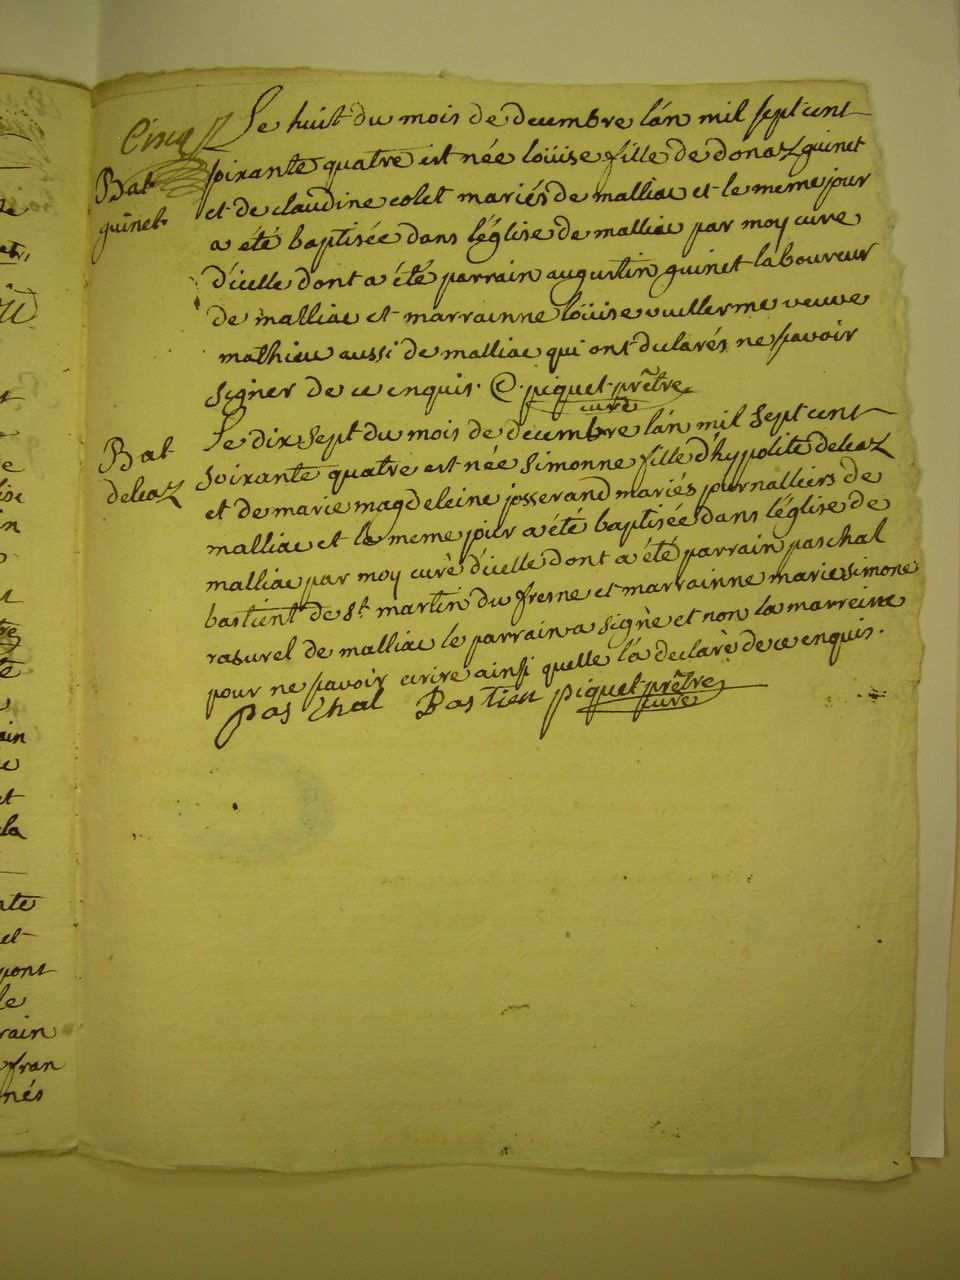 Cinq
Le huit du mois de decembre l'án mil sept cent
Bat
soixante quatre est née loüise fille de donaz guinet
guinet
et de claudine colet mariés de malliac et le meme jour
a été baptisée dans l'église de malliac par moy cure
d'icelle dont a été parrain augustin guinet laboureur
de malliac et marrainne loüise vuillerme veuve
mathieu aussi de malliac qui ont declarés ne savoir
signer de ce enquis. piquet prêtre
curé
Le dix sept du mois de decembre l'án mil sept cent
Bat
soixante quatre est née simonne fille d'hypolite deleaz
deleaz
et de marie magdeleine josserand mariés journalliers de
malliac et le meme jour a été baptisée dans l'église de
malliac par moy curè d'icelle dont a été parrain paschal
bastient de St. martin du fresne et marrainne marie simone
rasurel de malliac le parrain a signè et non la marreine
pour ne savoir ecrire ainsi quelle l'a declarè de ce enquis.
pas Chal Bas tien piquet prêtre
curé